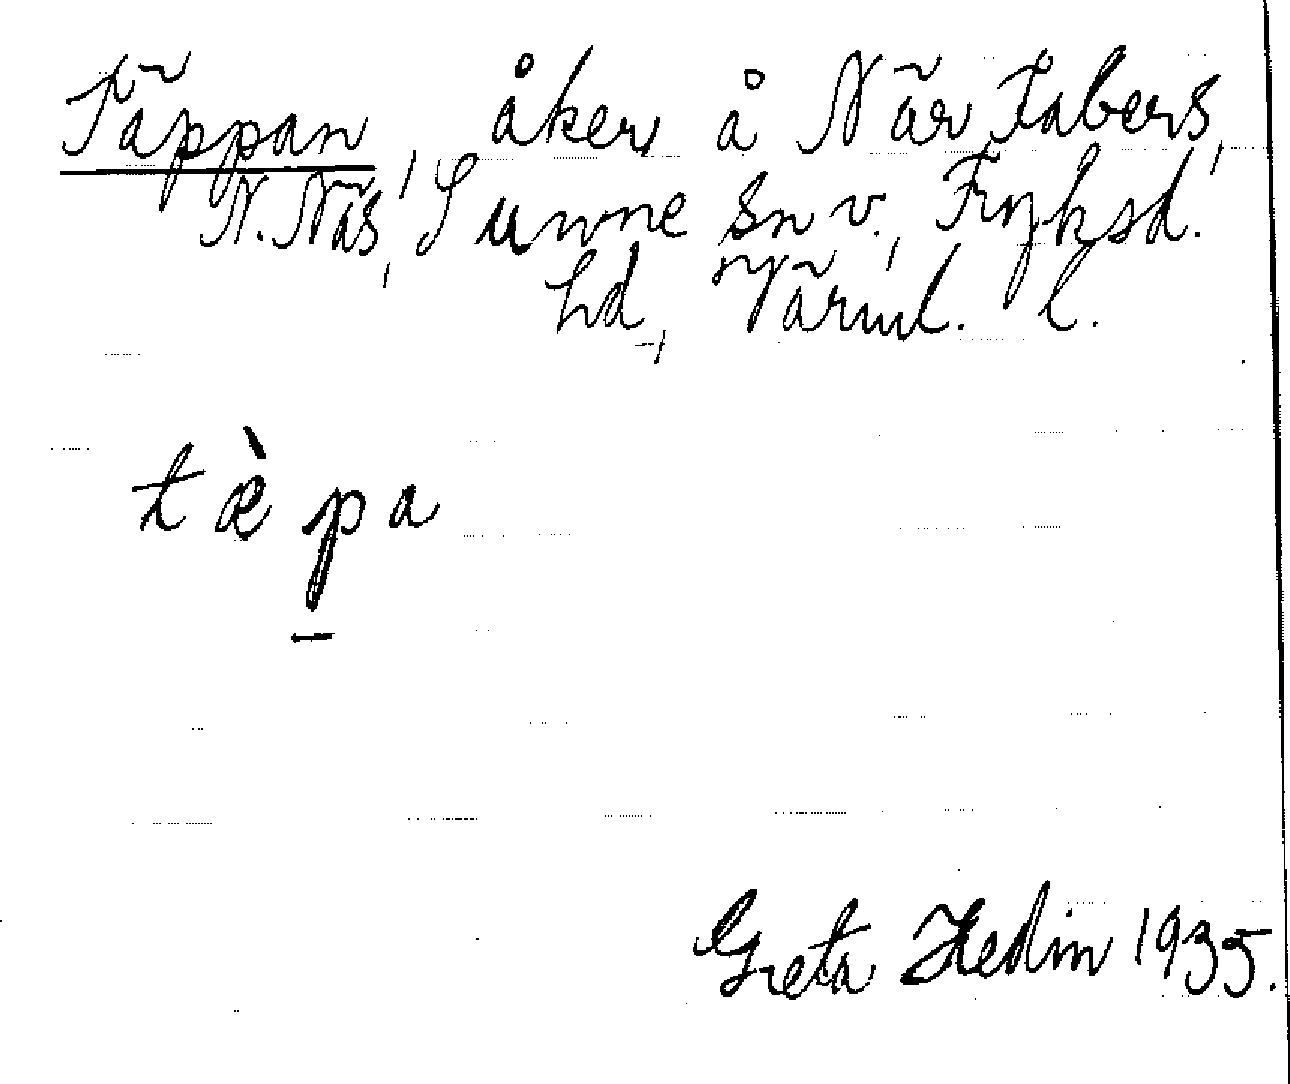 Täppan, åker å När Fabers,
N. Näs, Sunne sn v., Fryksd.
hd, Värml. l.
tæ̀pa
Greta Hedin 1935.